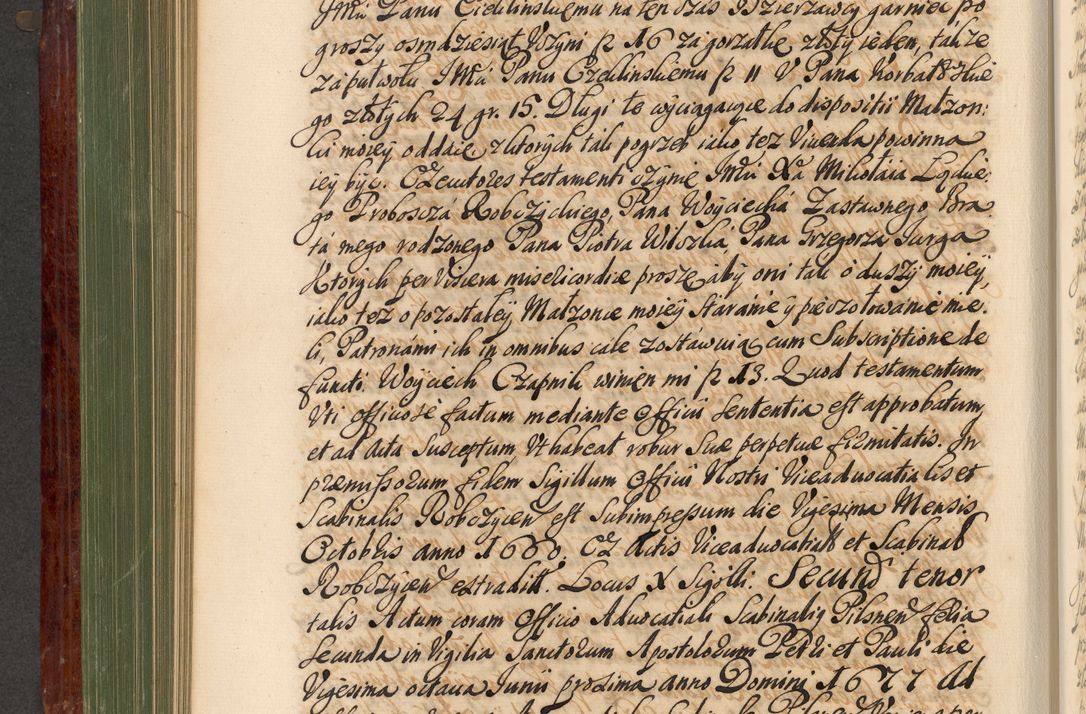 JMći Panu Czeklinskiemu na ten czas Dzierzawcy garniec po
groszy osmdziesiąt Uczyni fl 16 za gorzałkę złoty ieden, takze
za putwołu JMći Panu Czeklinskiemu fl 11 V Pana Korbatskie
go złotych 24 gr. 15. Długi te wyciągaiące do dispositii Małzon:
ki moiey oddaię z ktorych tak pogrzeb iako tez powinna
iey być. Executores testamenti czynię JMći Xa Mikołaia Łąckie:
go Proboscza Robczyckiego, Pana Woyciecha Zastawnego Bra
ta mego rodzonego Pana Piotra Wilczka, Pana Grzegorza Jurga
Ktorych per Viscera misericordiæ proszę aby oni tak o duszy moiey,
iako tez o pozostałey Małzonce moiey staranie y pieczołowanie mie.
li, Patronami ich in omnibus całe zostawuiąc cum Subscriptione de
functi. Woyciech Czapnik winien mi fl 13. Quod testamentum
Uti officiose factum mediante Officii sententia est approbatum
et ad Acta susceptum Ut habeat robur suæ perpetuæ firmitatis. In
præmissorum fidem Sigillum Officii Nostri Viceadvocatialis et
Scabinalis Robczycen est subimpressum die Vigesima Mensis
Octobris anno 1660. Ex Actis Viceadvocatial et Scabinal
Robczycen extradit. Locus X Sigilli. Secund tenor
talis Actum coram Officio Advocatiali Scabinaliq Pilsnen feria
secunda in Vigilia Sanctorum Apostolorum Petri et Pauli die
Vigesima octava Junii proxima anno Domini 1677 Ad